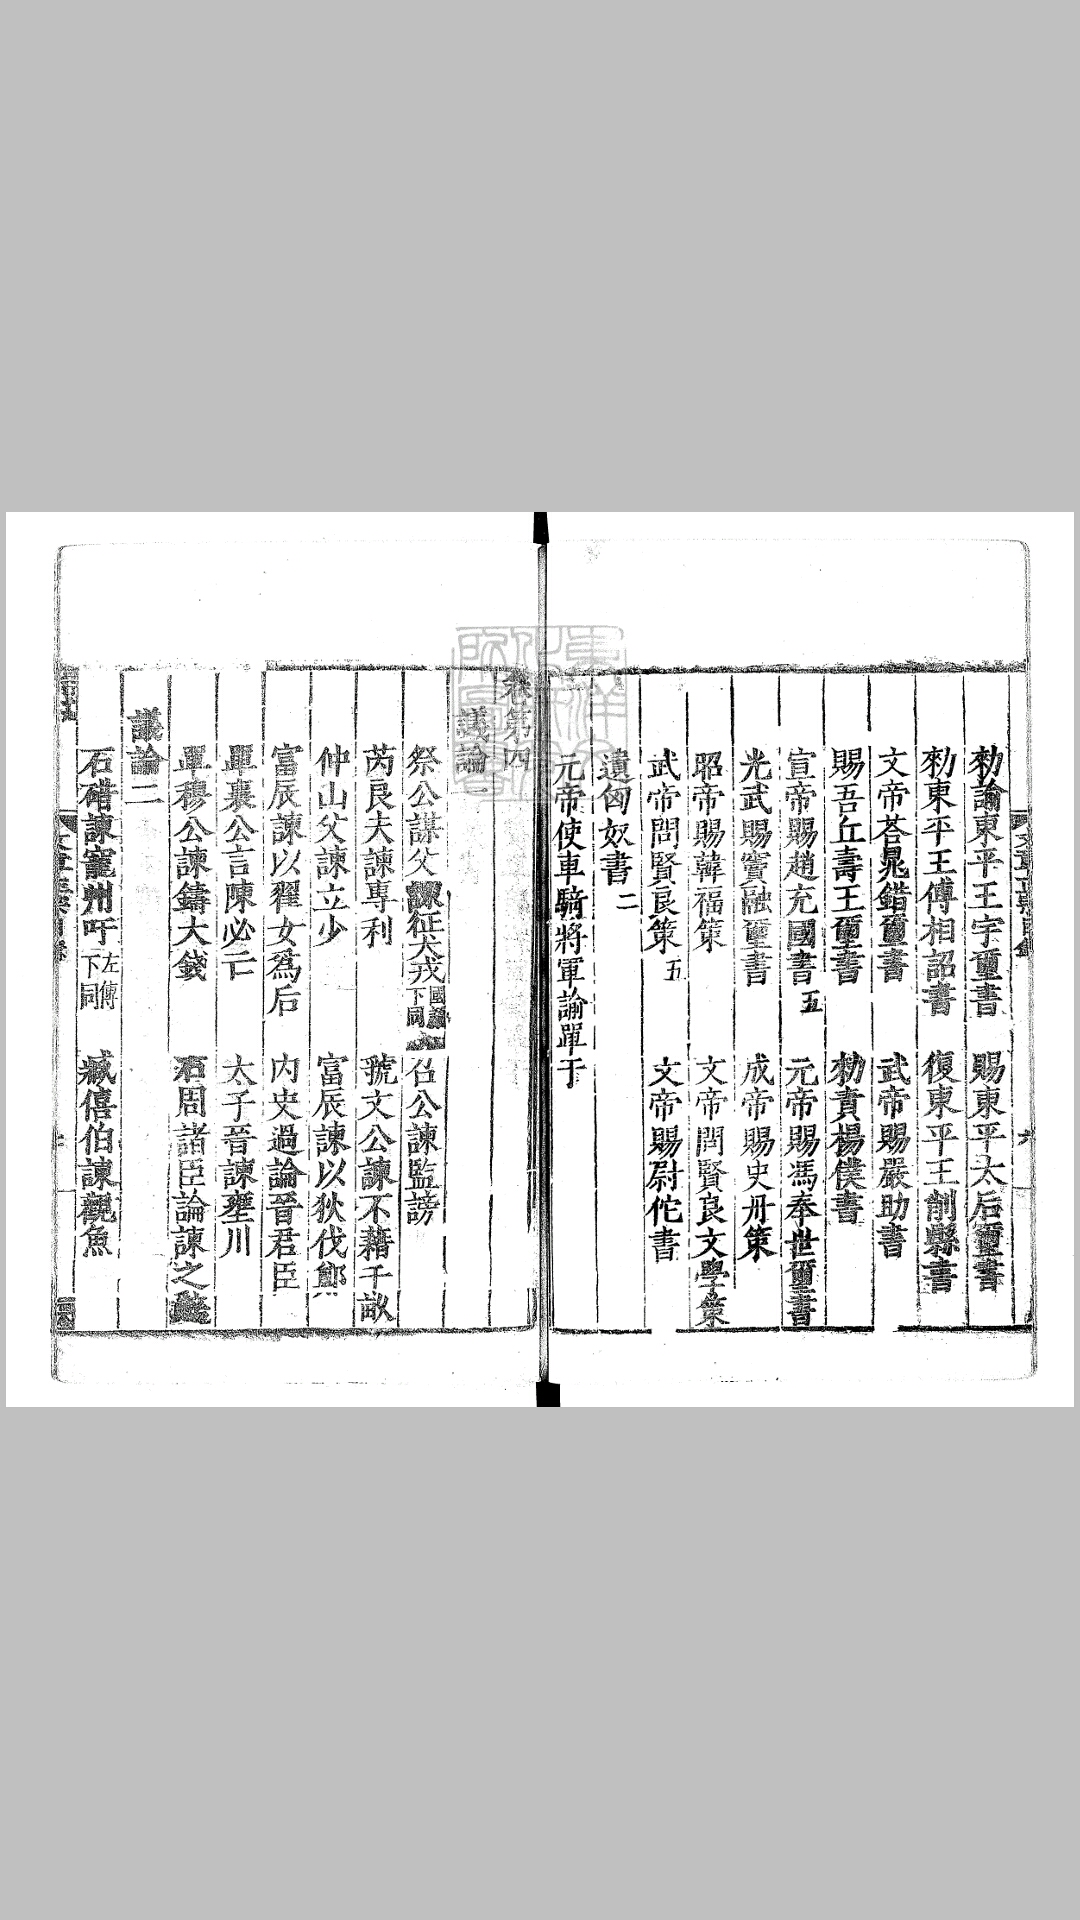 勑諭東平王宇璽書　賜東平太后璽書
勑東平王傅相詔書　復東平王削縣書
文帝荅晁錯璽書　武帝賜嚴助書
賜吾丘壽王璽書　勑責楊僕書
宣帝賜趙充國書五　元帝賜馮奉世璽書
光武賜竇融璽書　成帝賜史丹策
昭帝賜韓福策　文帝問賢良文學策
武帝問賢良策五　文帝賜尉佗書
遺匈奴書二
元帝使車騎將軍諭單于
卷第四
議論一
祭公謀父諫征犬戎國語下同　召公諫監謗
芮良夫諫專利　虢文公諫不藉千畝
仲山父諫立少　富辰諫以狄伐鄭
富辰諫以翟女爲后　内史過論晉君臣
單襄公言陳必亡　太子晉諫壅川
單穆公諫鑄大錢　右周諸臣論諫之
議論二
石碏諫寵州吁左傳下同　臧僖伯諫觀魚